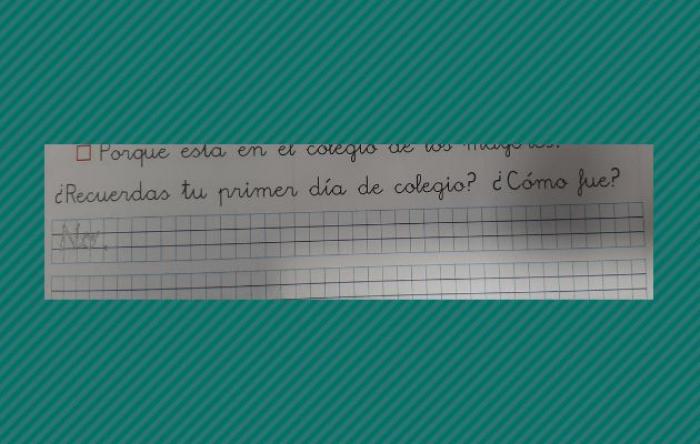 Porque está en el colegio de los mayores.
¿Recuerdas tu primer día de colegio? ¿Cómo fue?
No.